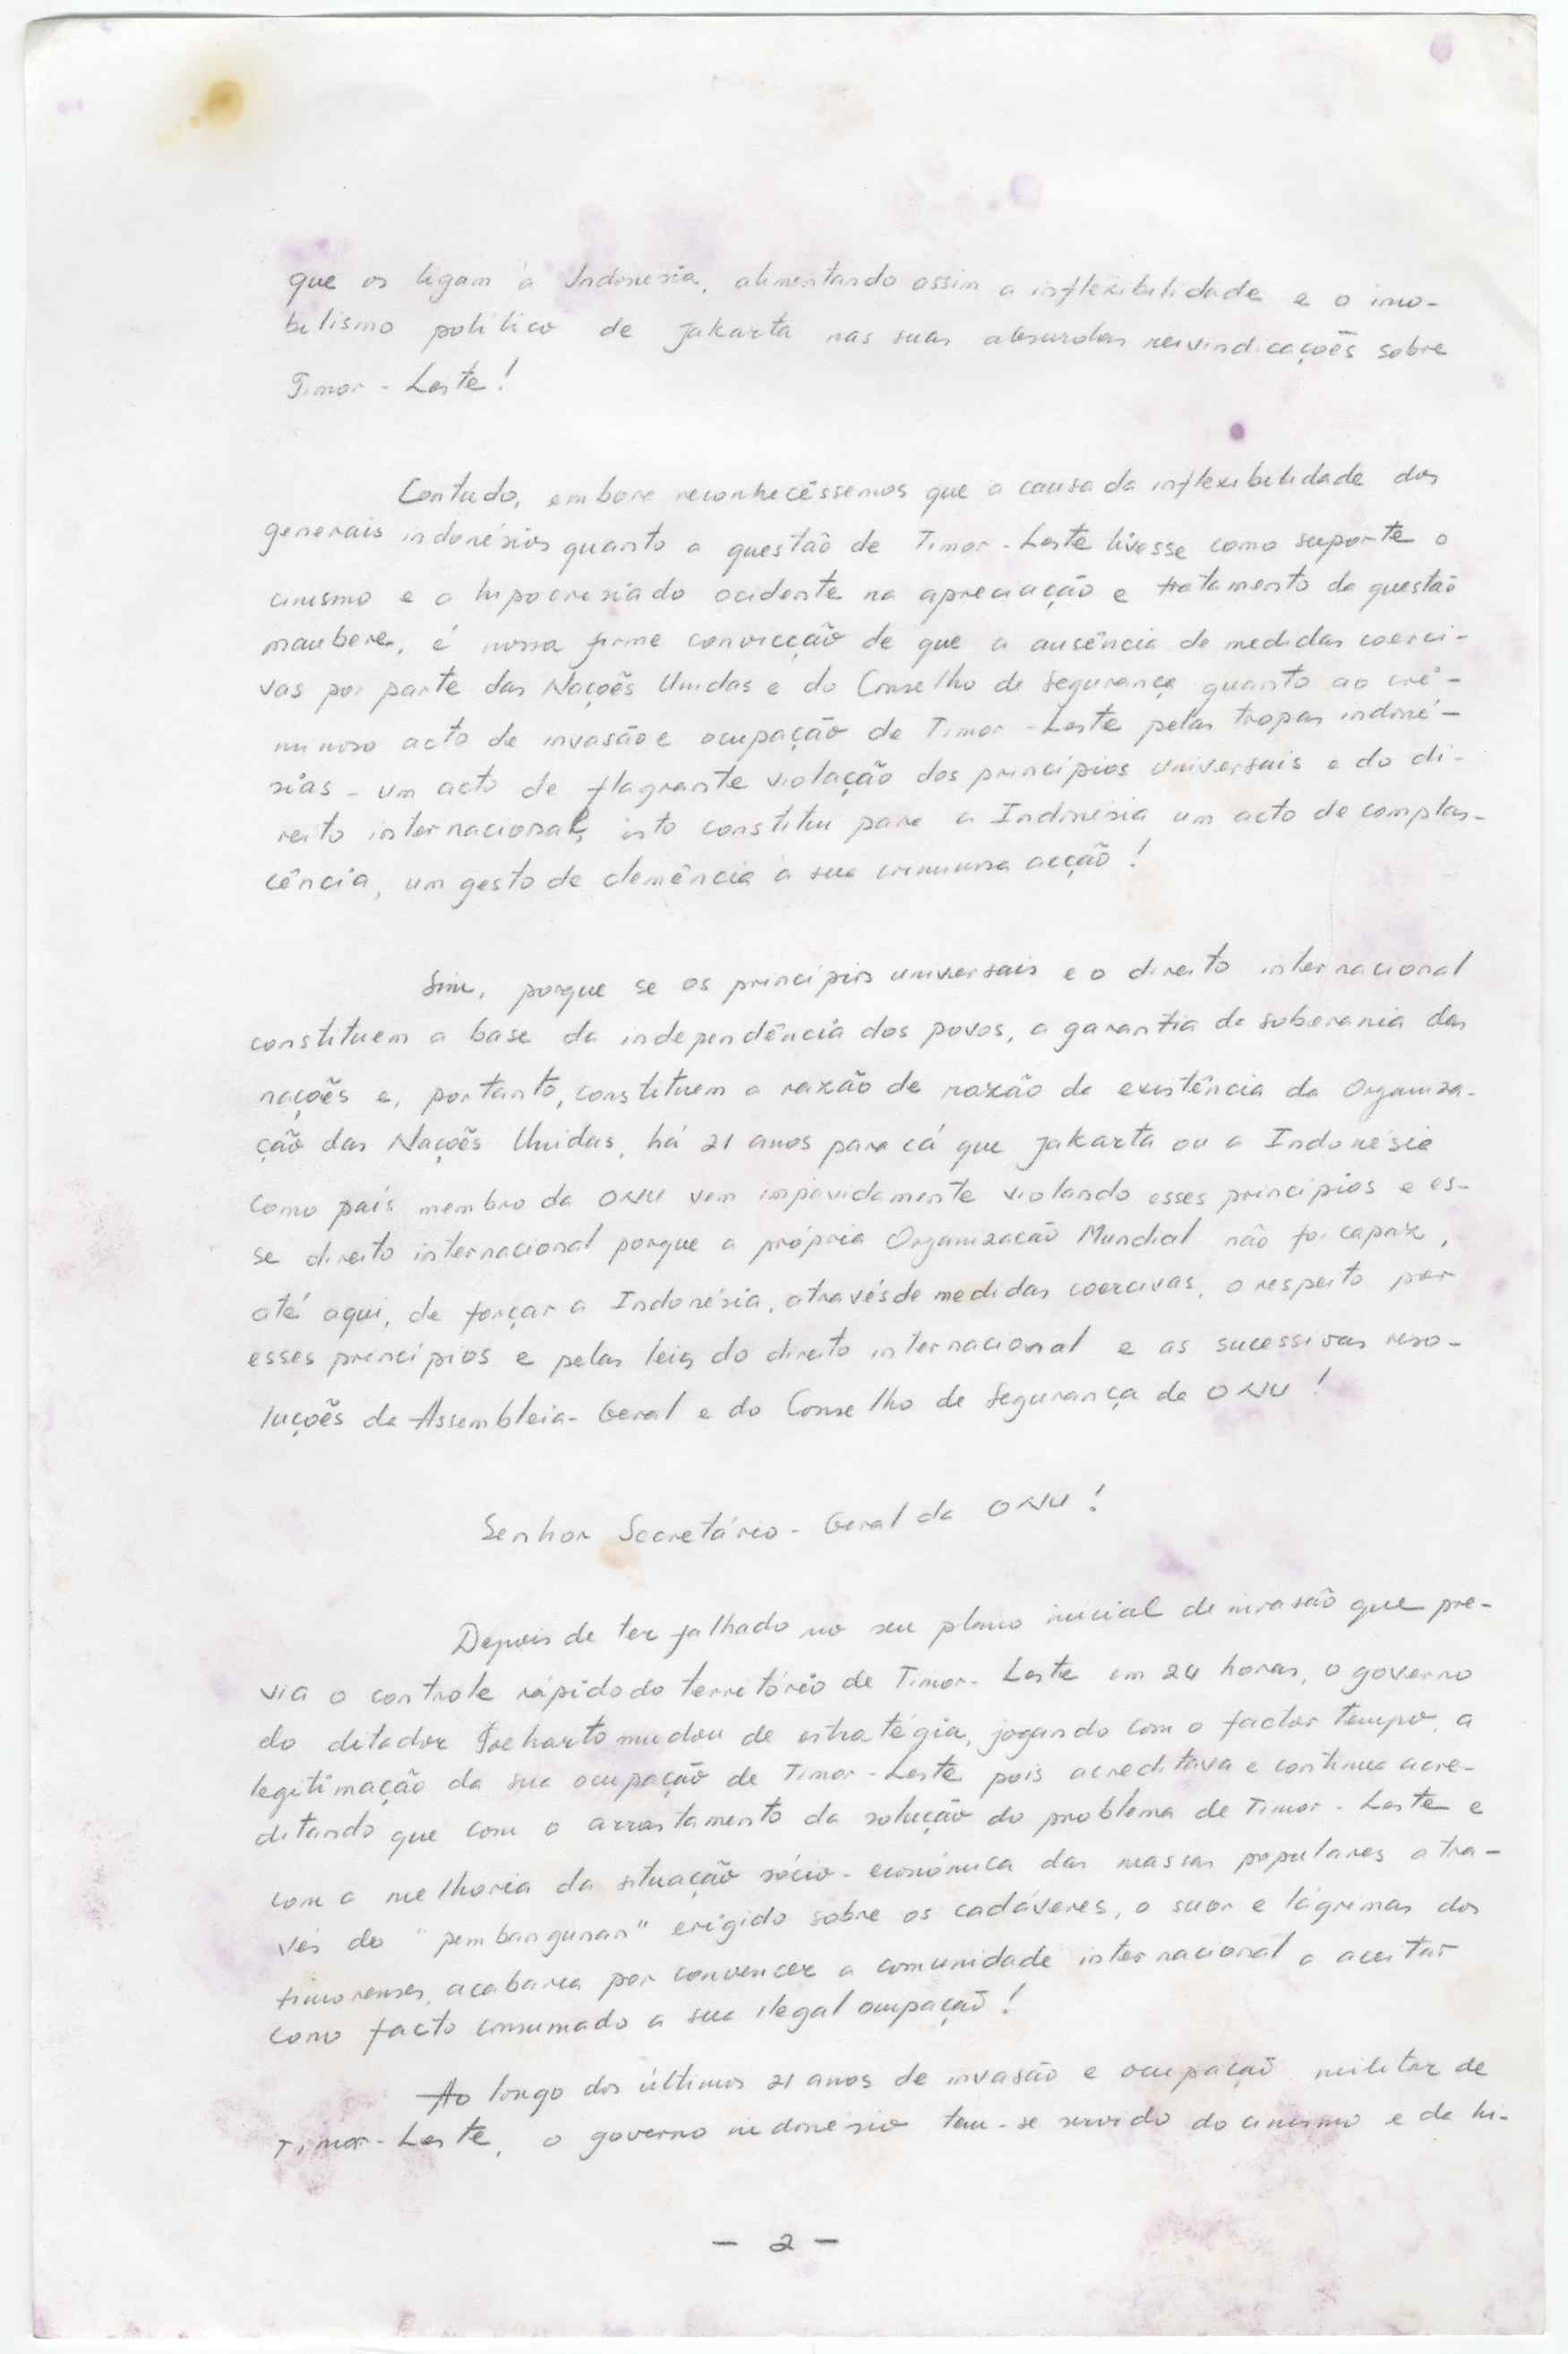 que os ligam à Indonésia, alimentando assim a inflexibilidade e o imo-
bilismo político de Jakarta nas suas absurdas reivindicações sobre
Timor-Leste!
Contudo, embora reconhecêssemos que a causa da inflexibilidade dos
generais indonésios quanto a questão de Timor-Leste tivesse como suporte o
cinismo e a hipocrisia do ocidente na apreciação e tratamento da questão
maubere, é nossa firme convicção de que a ausência de medidas coerci-
vas por parte das Nações Unidas e do Conselho de Segurança quanto ao cri-
minoso acto de invasão e ocupação de Timor-Leste pelas tropas indoné-
sias - um acto de flagrante violação dos princípios universais e do di-
reito internacional, isto constitui para a Indonésia um acto de complas-
cência, um gesto de clemência à sua criminosa acção!
Sim, porque se os princípios universais e o direito internacional
constituem a base da independência dos povos, a garantia da soberania das
nações e, portanto, constituem a razão de razão da existência da Organiza-
ção das Nações Unidas, há 21 anos para cá que Jakarta ou a Indonésia
como país membro da ONU vem impavidamente violando esses princípios e es-
se direito internacional porque a própria Organização Mundial não foi capaz,
até aqui, de forçar a Indonésia, através de medidas coercivas, o respeito por
esses princípios e pelas leis do direito internacional e as sucessivas reso-
luções da Assembleia-Geral e do Conselho de Segurança da ONU!
Senhor Secretário-Geral da ONU!
Depois de ter falhado no seu plano inicial de invasão que pre-
via o controle rápido do território de Timor-Leste em 24 horas, o governo
do ditador Soeharto mudou de estratégia, jogando com o factor tempo, a
legitimação da sua ocupação de Timor-Leste pois acreditava e continua acre-
ditando que com o arrastamento da solução do problema de Timor-Leste e
com a melhoria da situação sócio-económica das massas populares atra-
vés do "pembangunan" erigido sobre os cadáveres, o suor e lágrimas dos
timorenses, acabaria por convencer a comunidade internacional a aceitar
como facto consumado a sua ilegal ocupação!
Ao longo dos últimos 21 anos de invasão e ocupação militar de
Timor-Leste, o governo indonésio tem-se servido do cinismo e da hi-
- 2 -